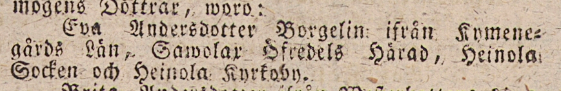 mogens Döttrar, woro:
Eva Andersdotter Borgelin ifrån Kymene-
gårds Län, Sawolax Öfredels Härad, Heinola
Socken och Heinola Kyrkoby.